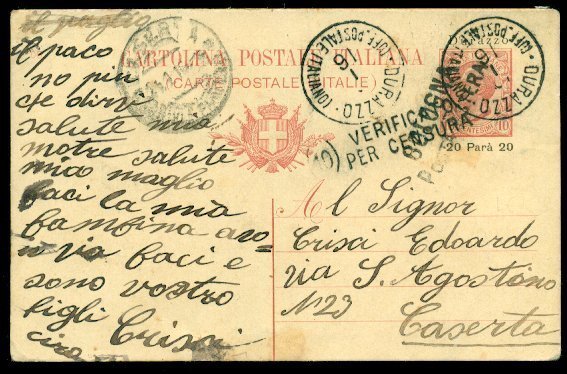 il paco
no piu
che dirvi
salute mia
motre salute
mia moglio
baci la mia
bambina
via baci e
sono vostro
figli Crisci
Ciro
CARTOLINA POSTALE ITALIANA
(CARTE POSTALE D'ITALIE)
DURAZZO
(UFF. POSTALE ITALIANO)
Durazzo
DURAZZO
(UFF. POSTALE ITALIANO)
VERIFICATO
PER CENSURA
BOLOGNA
10
20 Parà 20
Al Signor
Crisci Edoardo
via S. Agostino
N 23
Caserta